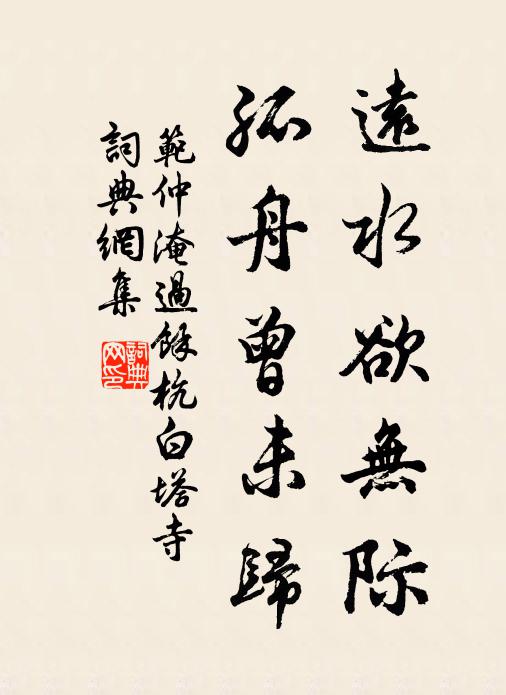 遠水欲無際
孤舟曾未歸
範仲淹過餘杭白塔寺
詞典網集
詞典网印